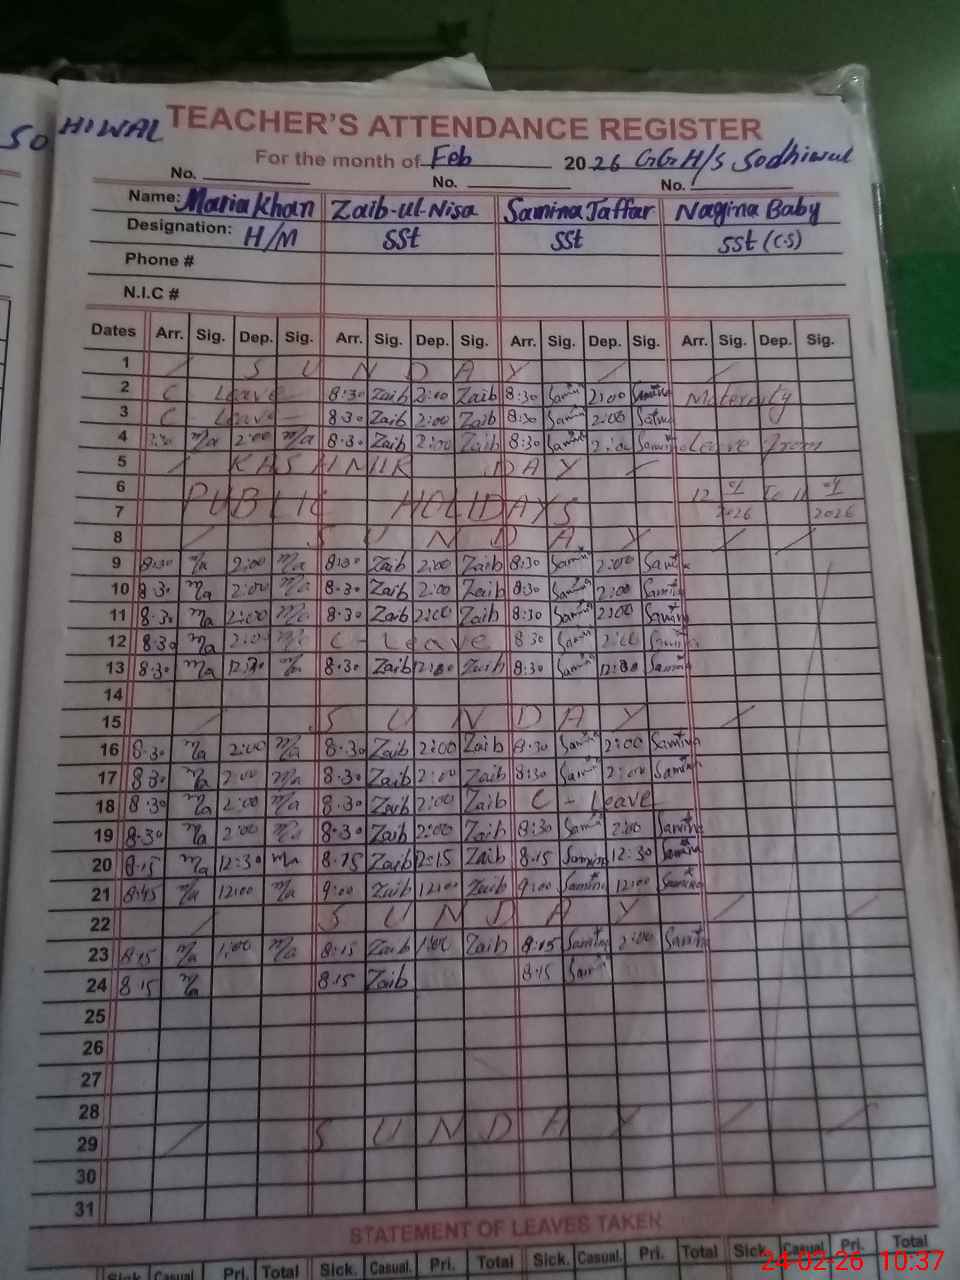 SO HIWAL TEACHER'S ATTENDANCE REGISTER
For the month of Feb 2026 GGH/S Sodhiwal
No. No. No.
Name: Maria Khan Zaib-ul-Nisa Samina Jaffar Nagina Baby
Designation: H/M SSt SSt SSt (C.S)
Phone #
N.I.C #
Dates Arr. Sig. Dep. Sig. Arr. Sig. Dep. Sig. Arr. Sig. Dep. Sig. Arr. Sig. Dep. Sig.
1 SUNDAY
2 C Leave 8:30 Zaib 2:00 Zaib 8:30 Samina 2:00 Samina Maternity
3 C - Leave 8:30 Zaib 2:00 Zaib 8:30 Samina 2:00 Samina
4 m/a 2:00 m/a 8:30 Zaib 2:00 Zaib 8:30 Samina 2:00 Samina Leave From
5 KASHMIR DAY
6 PUBLIC HOLIDAYS 12 01 2026 To 11 04 2026
7
8 SUNDAY
9 8:30 m/a 2:00 m/a 8:30 Zaib 2:00 Zaib 8:30 Samina 2:00 Samina
10 8:30 m/a 2:00 m/a 8:30 Zaib 2:00 Zaib 8:30 Samina 2:00 Samina
11 8:30 m/a 2:00 m/a 8:30 Zaib 2:00 Zaib 8:30 Samina 2:00 Samina
12 8:30 m/a 2:00 m/a C - Leave 8:30 Samina 2:00 Samina
13 8:30 m/a 12:30 m/a 8:30 Zaib 12:30 Zaib 8:30 Samina 12:30 Samina
14
15 SUNDAY
16 8:30 m/a 2:00 m/a 8:30 Zaib 2:00 Zaib 8:30 Samina 2:00 Samina
17 8:30 m/a 2:00 m/a 8:30 Zaib 2:00 Zaib 8:30 Samina 2:00 Samina
18 8:30 m/a 2:00 m/a 8:30 Zaib 2:00 Zaib C - Leave
19 8:30 m/a 2:00 m/a 8:30 Zaib 2:00 Zaib 8:30 Samina 2:00 Samina
20 8:15 m/a 12:30 m/a 8:15 Zaib 12:15 Zaib 8:15 Samina 12:30 Samina
21 8:45 m/a 12:00 m/a 9:00 Zaib 12:00 Zaib 9:00 Samina 12:00 Samina
22 SUNDAY
23 8:15 m/a 1:00 m/a 8:15 Zaib 1:00 Zaib 8:15 Samina 2:00 Samina
24 8:15 m/a 8:15 Zaib 8:15 Samina
25
26
27
28
29 SUNDAY
30
31
STATEMENT OF LEAVES TAKEN
Sick. Casual. Pri. Total Sick. Casual. Pri. Total Sick. Casual. Pri. Total Sick. Casual. Pri. Total
24-02-26 10:37